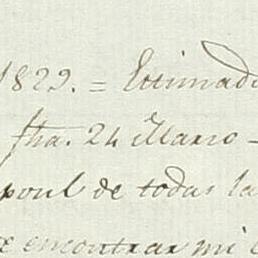 1829. = Estimado
fha. 24 Marzo -
de todas la
encontrar mi